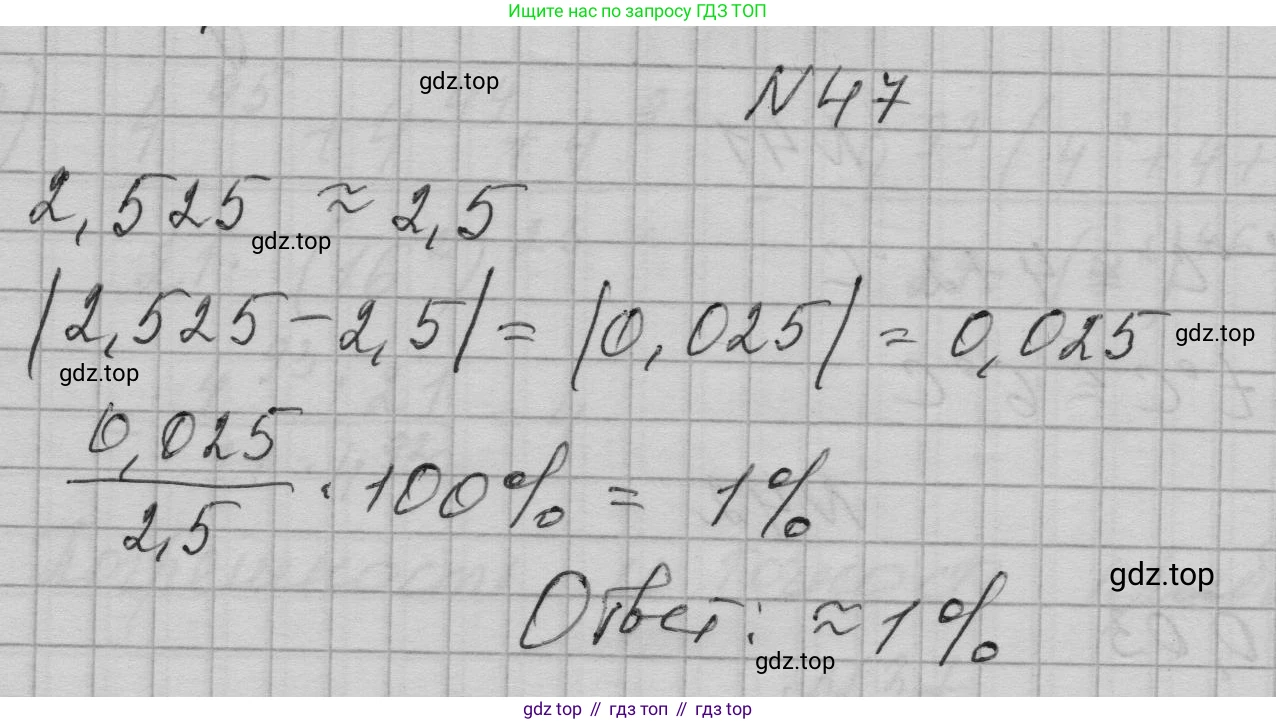 Ищите нас по запросу ГДЗ ТОП
gdz.top
N 47
2,525 ≈ 2,5
gdz.top
|2,525 - 2,5| = |0,025| = 0,025
gdz.top
gdz.top
0,025/2,5 · 100% = 1%
gdz.top
Ответ: ≈ 1%
gdz.top
gdz top // гдз топ // gdz top